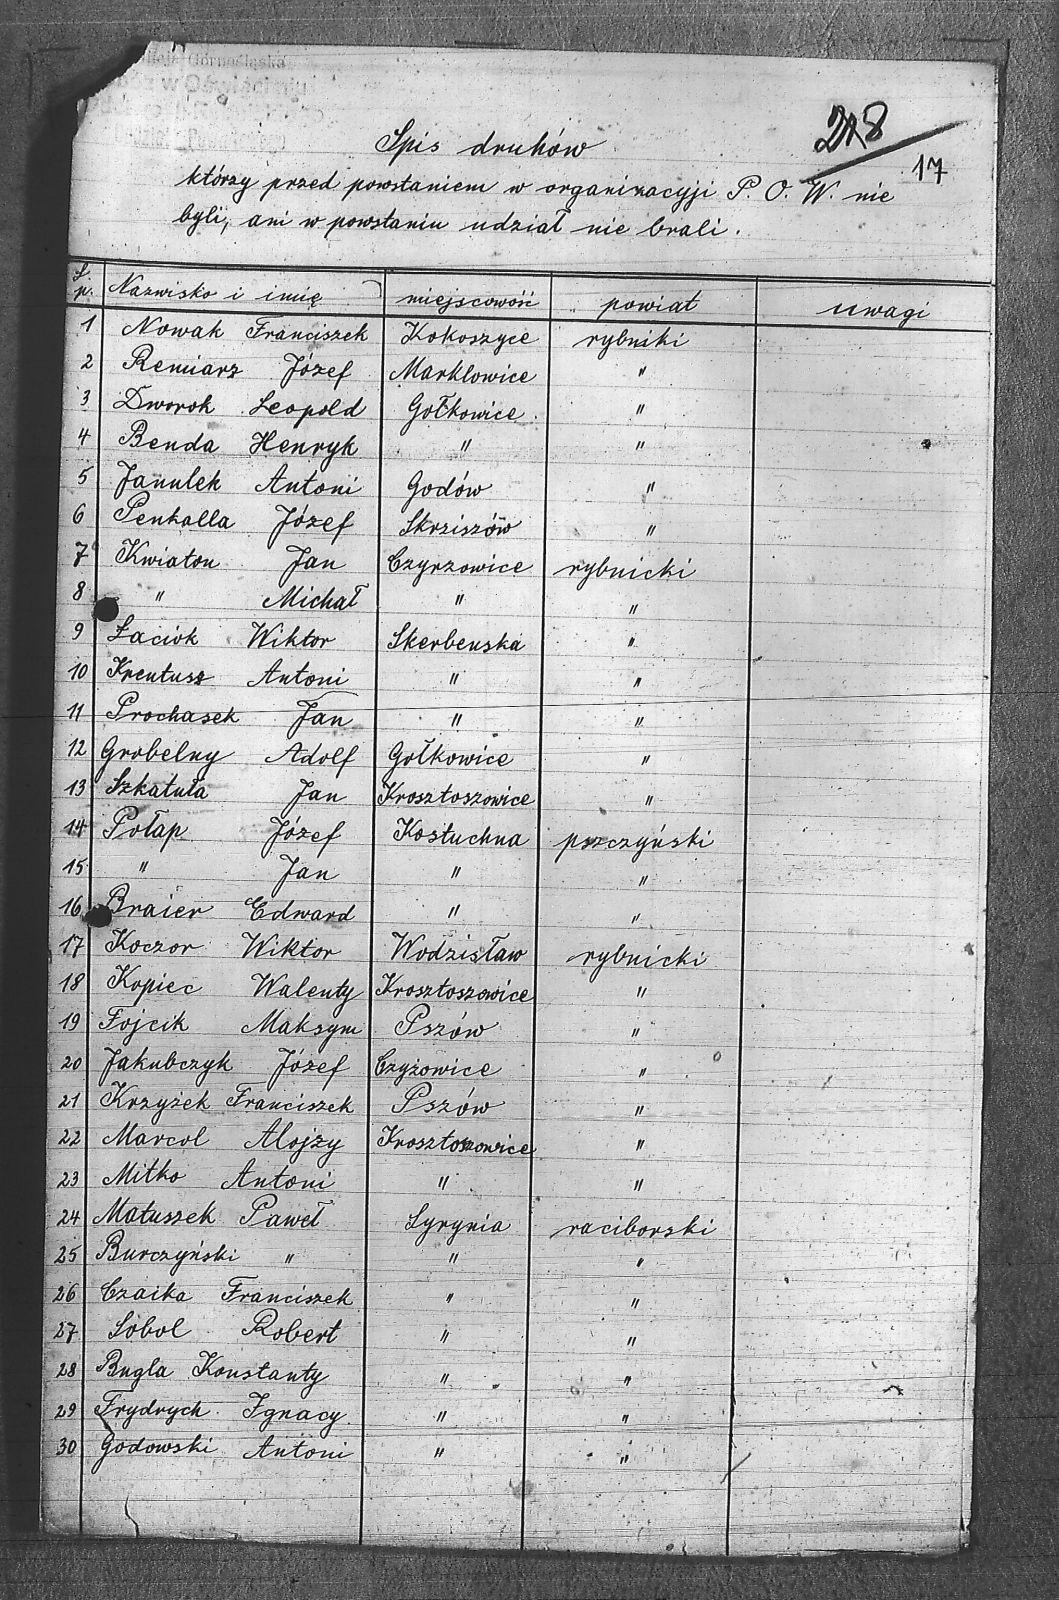 Górnośląska
w Oświęcimiu
218
17
Spis druhów
którzy przed powstaniem w organizacyji P. O. W. nie
byli, ani w powstaniu udział nie brali.
L. p. Nazwisko i imię miejscowość powiat uwagi
1 Nowak Franciszek Kokoszyce rybniki
2 Remiarz Józef Marklowice "
3 Dworok Leopold Gołkowice "
4 Benda Henryk " "
5 Janulek Antoni Godów "
6 Penkalla Józef Skrziszów "
7 Kwiaton Jan Czyrzowice rybnicki
8 " Michał " "
9 Łaciok Wiktor Skerbenska "
10 Krentusz Antoni " "
11 Prochasek Jan " "
12 Grobelny Adolf Gołkowice "
13 Szkatuła Jan Krosztoszowice "
14 Połap Józef Kostuchna pszczyński
15 " Jan " "
16 Braier Edward " "
17 Koczor Wiktor Wodzisław rybnicki
18 Kopiec Walenty Krosztoszowice "
19 Fojcik Maksym Pszów "
20 Jakubczyk Józef Czyżowice "
21 Krzyżek Franciszek Pszów "
22 Marcol Alojzy Krosztoszowice "
23 Mitko Antoni " "
24 Matuszek Paweł Syrynia raciborski
25 Burczyński " " "
26 Czaika Franciszek " "
27 Sobol Robert " "
28 Bugla Konstanty " "
29 Frydrych Ignacy " "
30 Godowski Antoni " "